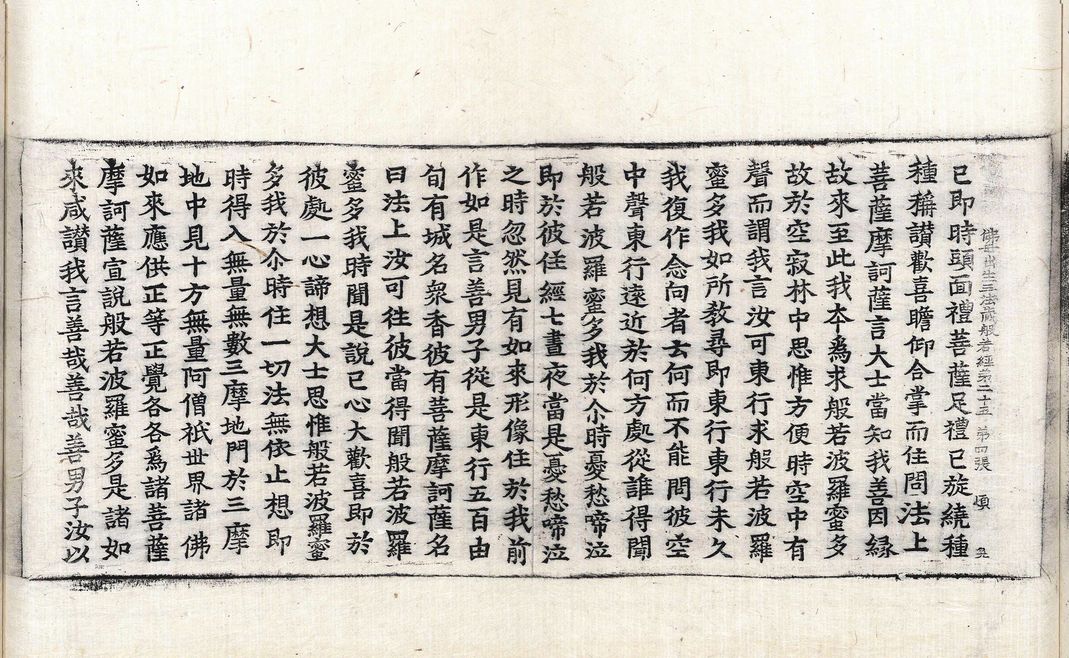 佛母出生三法藏般若經第二十五 第四張 傾
已即時頭面禮菩薩足禮已旋繞種
種稱讃歡喜瞻仰合掌而住問法上
菩薩摩訶薩言大士當知我善因緣
故來至此我夲爲求般若波羅蜜多
故於空寂林中思惟方便時空中有
聲而謂我言汝可東行求般若波羅
蜜多我如所教尋即東行東行未久
我復作念向者云何而不能問彼空
中聲東行遠近於何方處從誰得聞
般若波羅蜜多我於尒時憂愁啼泣
即於彼住經七晝夜當是憂愁啼泣
之時忽然見有如來形像住於我前
作如是言善男子從是東行五百由
旬有城名衆香彼有菩薩摩訶薩名
曰法上汝可往彼當得聞般若波羅
蜜多我時聞是說已心大歡喜即於
彼處一心諦想大士思惟般若波羅蜜
多我於尒時住一切法無依止想即
時得入無量無數三摩地門於三摩
地中見十方無量阿僧祇世界諸佛
如來應供正等正覺各各爲諸菩薩
摩訶薩宣說般若波羅蜜多是諸如
來咸讃我言善哉善哉善男子汝以